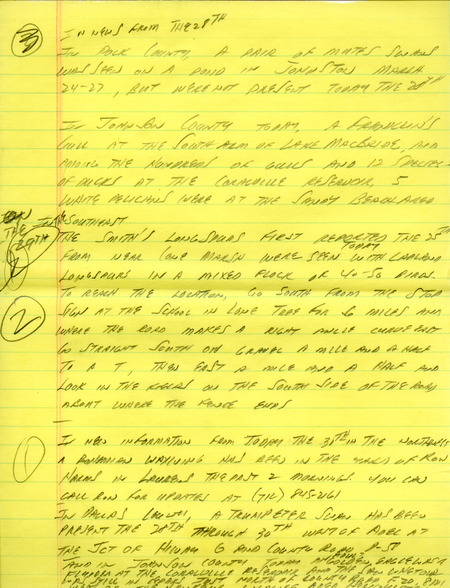 3
IN NEWS FROM THE 28TH
IN POLK COUNTY, A PAIR OF MUTES SWANS
WAS SEEN ON A POND IN JOHNSTON MARCH
24-27, BUT WERE NOT PRESENT TODAY THE 28TH
IN JOHNSON COUNTY TODAY, A FRANKLIN'S
GULL AT THE SOUTH ARM OF LAKE MACBRIDE, AND
AMONG THE HUNDREDS OF GULLS AND 12 SPECIES
OF DUCKS AT THE CORALVILLE RESERVOIR, 5
WHITE PELICANS WERE AT THE SANDY BEACH AREA
IN THE SOUTHEAST
THE 29TH
THE SMITH'S LONGSPURS FIRST REPORTED THE 25TH
FROM NEAR CONE MARSH WERE SEEN TODAY WITH LAPLAND
LONGSPURS IN A MIXED FLOCK OF 40-50 BIRDS.
2
TO REACH THE LOCATION, GO SOUTH FROM THE STOP
SIGN AT THE SCHOOL IN LONE TREE FOR 6 MILES AND
WHERE THE ROAD MAKES A RIGHT ANGLE CURVE EAST
GO STRAIGHT SOUTH ON GRAVEL A MILE AND A HALF
TO A T, THEN EAST A MILE AND A HALF AND
LOOK IN THE FIELDS ON THE SOUTH SIDE OF THE ROAD
ABOUT WHERE THE FENCE ENDS
1
IN NEW INFORMATION FROM TODAY THE 30TH IN THE NORTHWEST
A BOHEMIAN WAXWING HAS BEEN IN THE YARD OF RON
HARMS IN LAURENS THE PAST 2 MORNINGS. YOU CAN
CALL RON FOR UPDATES AT (712) 845-2161
IN DALLAS COUNTY, A TRUMPETER SWAN HAS BEEN
PRESENT THE 28TH THROUGH 30TH WEST OF ADEL AT
THE JCT OF HIWAY 6 AND COUNTY ROAD P-51
AND IN JOHNSON COUNTY TODAY A GOLDEN EAGLE WAS
AT THE CORALVILLE RESERVOIR AND
OF COUNTY ROAD F-20,